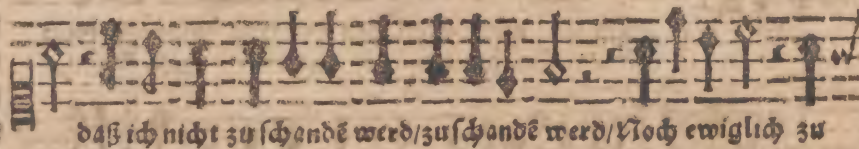 daß ich nicht zu schandē werd/zu schandē werd/Noch ewiglich zu